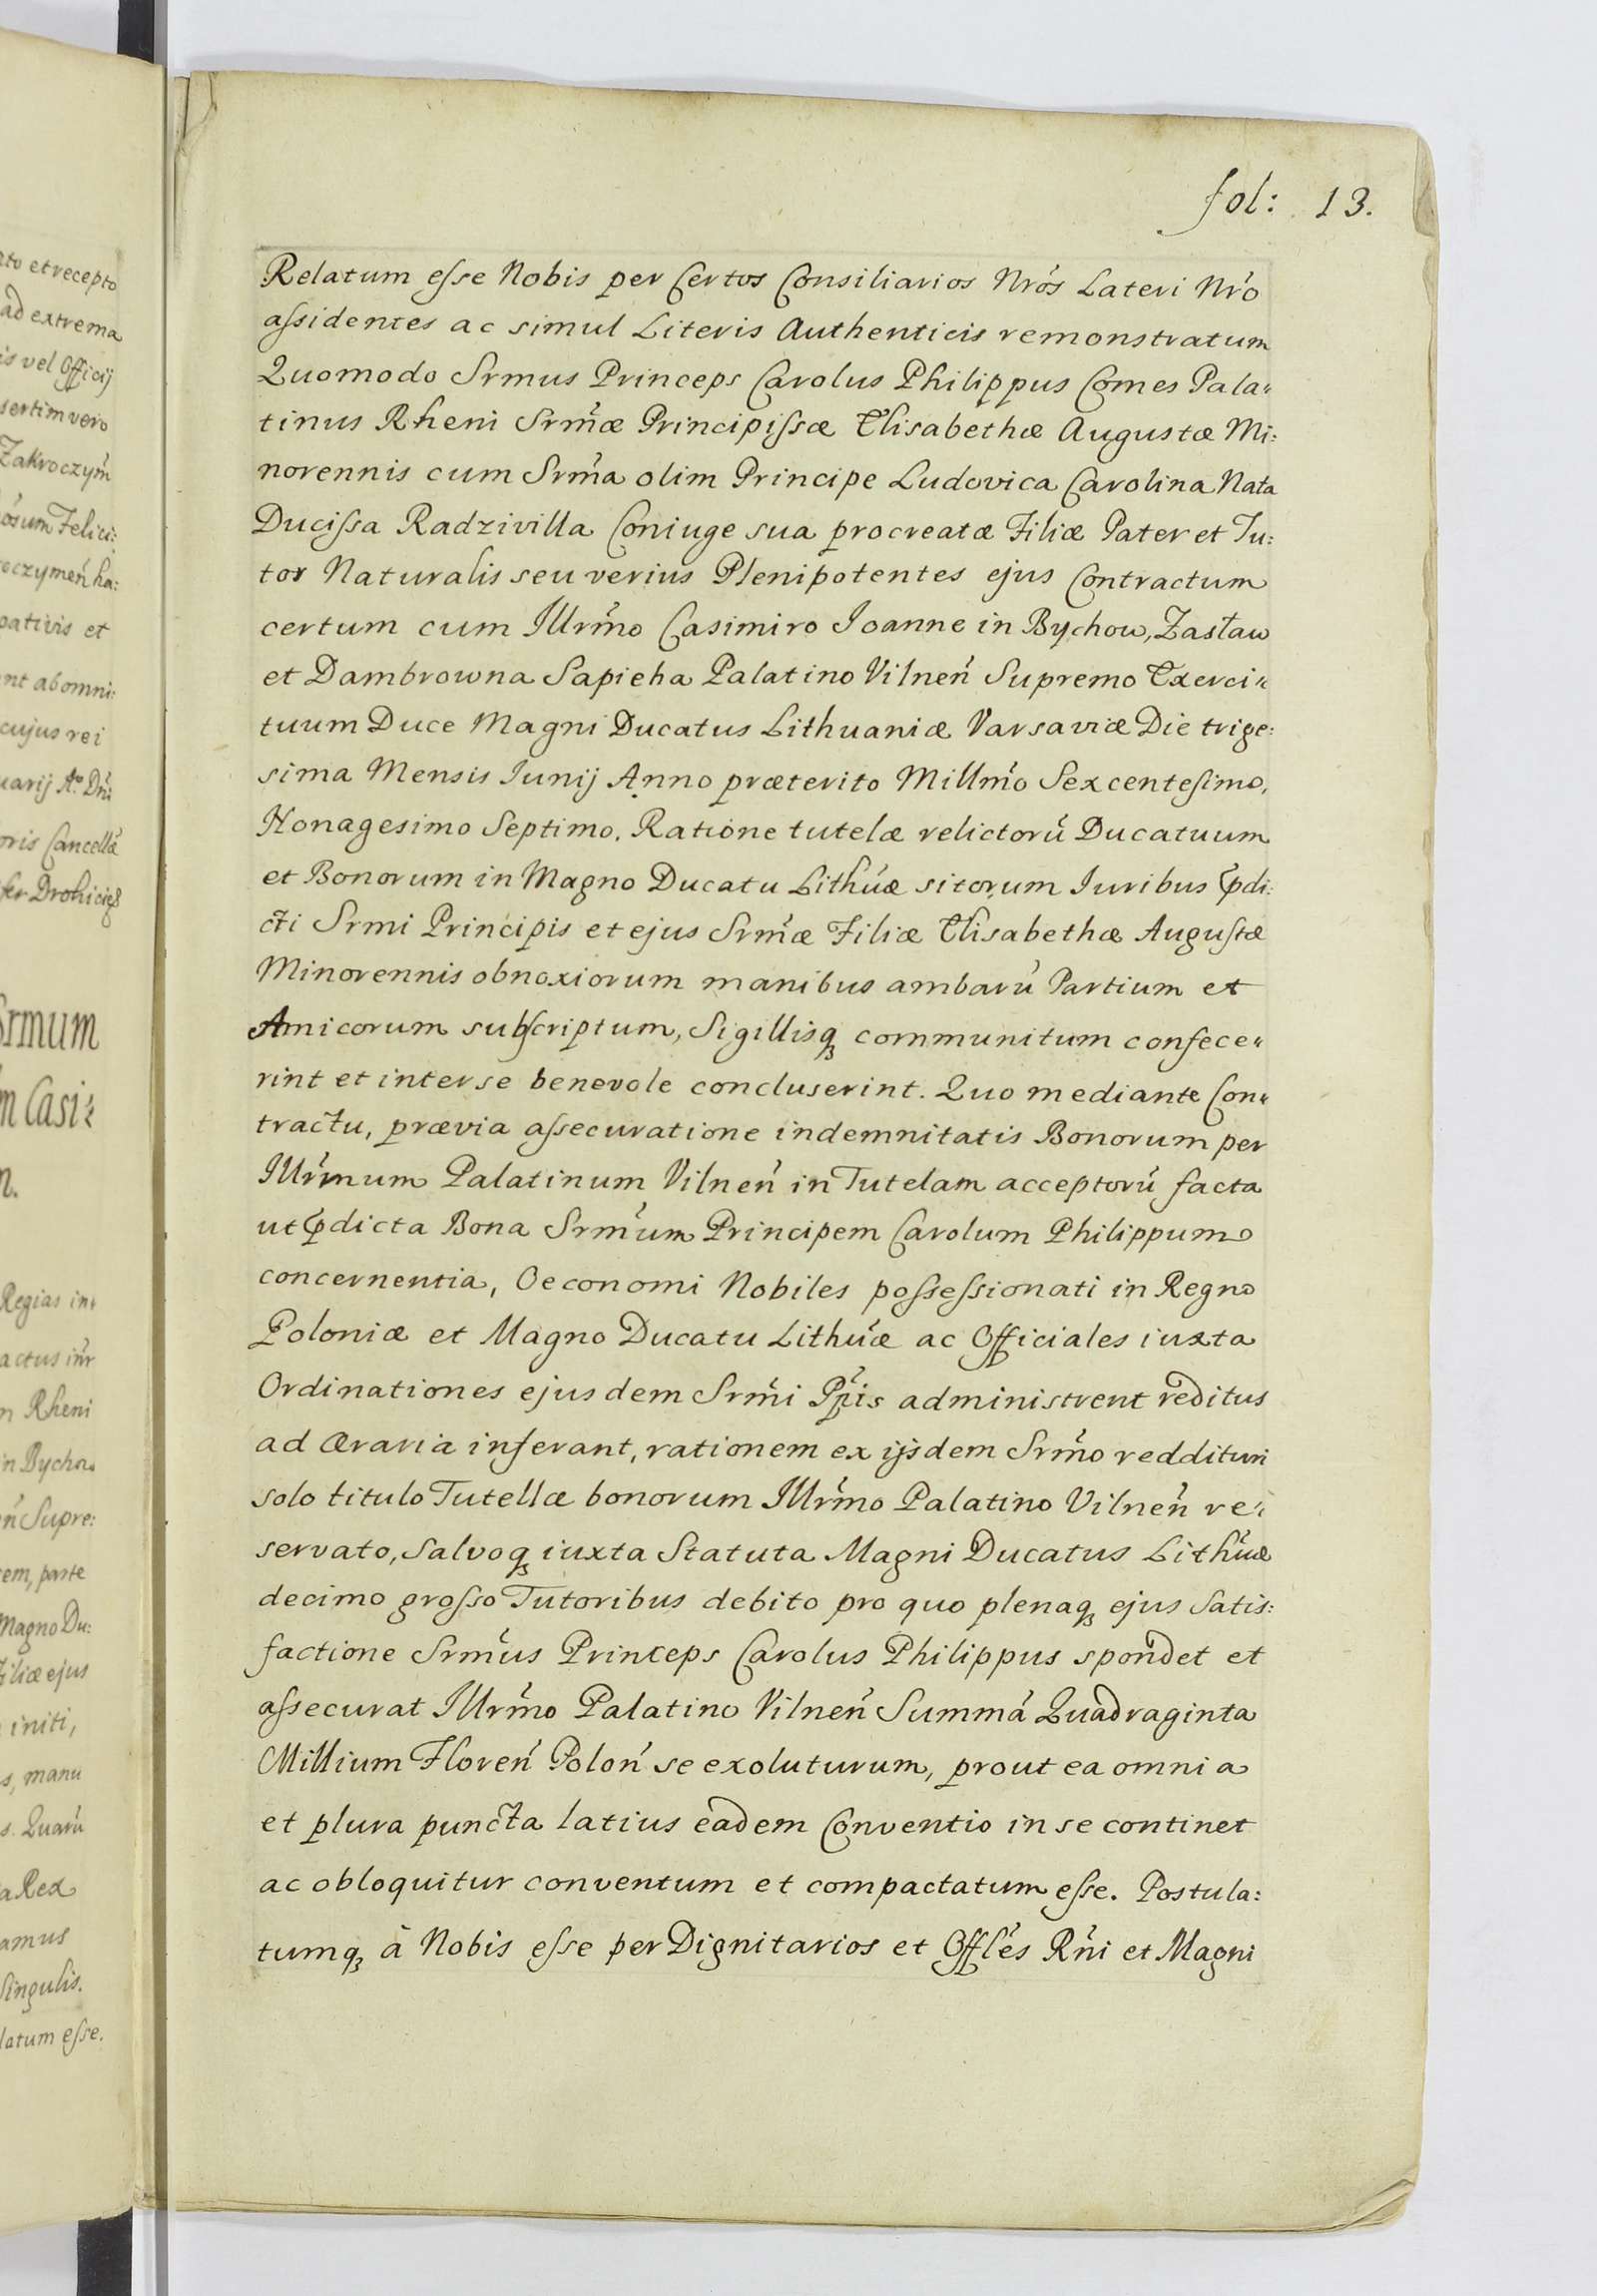 fol: 13.
Relatum esse Nobis per Certos Consiliarios Nrós Lateri Nró
assidentes ac simul Literis Authenticis remonstratum
Quomodo Srmus Princeps Carolus Philippus Comes Pala-
tinus Rheni Srmæ Principissæ Elisabethæ Augustæ Mi:
norennis cum Srma olim Principe Ludovica Carolina Nata
Ducissa Radzivilla Coniuge sua procreatæ Filiæ Pater et Tu:
tor Naturalis seu verius Plenipotentes ejus Contractum
certum cum Illrmo Casimiro Ioanne in Bychow, Zasław
et Dambrowna Sapieha Palatino Vilneń Supremo Exerci-
tuum Duce Magni Ducatus Lithuaniæ Varsaviæ Die trige:
sima Mensis Iunij Anno præterito Millmo Sexcentesimo,
Nonagesimo Septimo. Ratione tutelæ relictorú Ducatuum
et Bonorum in Magno Ducatu Lithúæ sitorum Iuribus p̃di:
cti Srmi Principis et ejus Srmæ Filiæ Elisabethæ Augustæ
Minorennis obnoxiorum manibus ambarú Partium et
Amicorum subscriptum, Sigillisq́ communitum confece-
rint et inter se benevole concluserint. Quo mediante Con-
tractu, prævia assecuratione indemnitatis Bonorum per
Illrmum Palatinum Vilneń in Tutelam acceptorú facta
ut p̃dicta Bona Srmum Principem Carolum Philippum
concernentia, Oeconomi Nobiles possessionati in Regno
Poloniæ et Magno Ducatu Lithúæ ac Officiales iuxta
Ordinationes ejusdem Srmi Ppis administrent reditus
ad Æraria inferant, rationem ex ijsdem Srmo reddituri
solo titulo Tutellæ bonorum Illrmo Palatino Vilneń re-
servato, Salvoq́ iuxta Statuta Magni Ducatus Lithúæ
decimo grosso Tutoribus debito pro quo plenaq́ ejus Satis:
factione Srmus Princeps Carolus Philippus spondet et
assecurat Illrmo Palatino Vilneń Summá Quadraginta
Millium Floreń Poloń se exoluturum, prout ea omnia
et plura puncta latius eadem Conventio in se continet
ac obloquitur conventum et compactatum esse. Postula:
tumq́ à Nobis esse per Dignitarios et Offlés Rńi et Magni